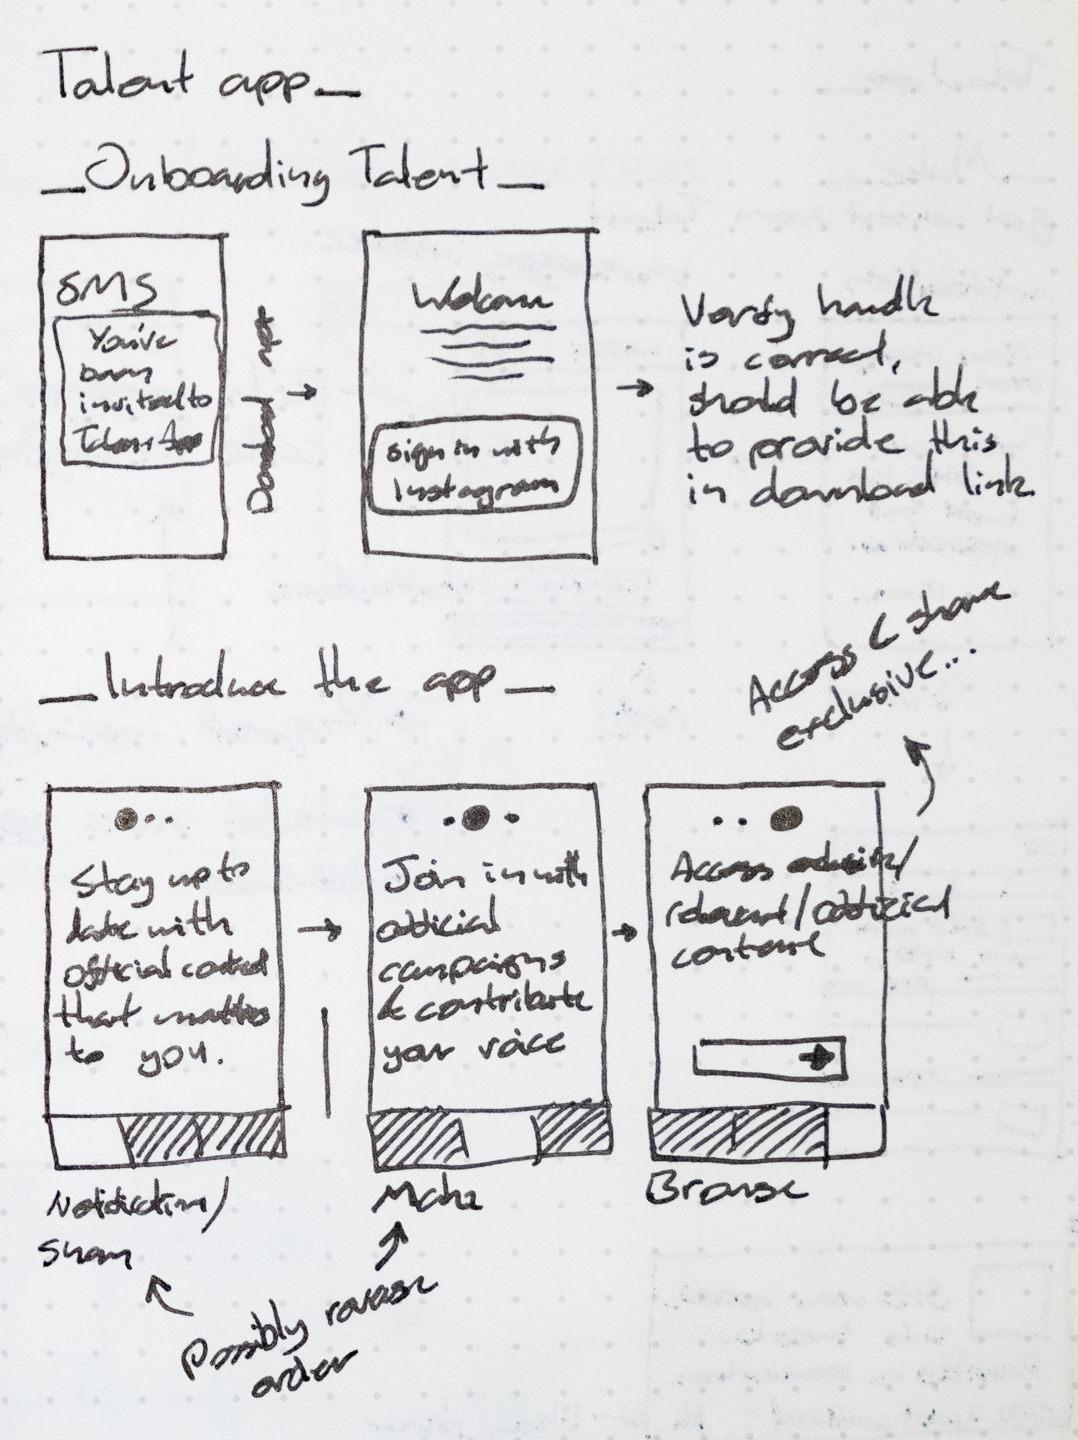 Talent app_
_Onboarding Talent_
SMS
You've
been
invited to
Talent App
Download
Welcome
sign in with
Instagram
Verify handle
is correct,
should be able
to provide this
in download link
_Introduce the app_
Access & share
exclusive...
Stay up to
date with
official content
that matters
to you.
Join in with
official
campaigns
& contribute
your voice
Access exclusive/
relevant/official
content
Notification/
Make
Browse
Possibly reverse
order